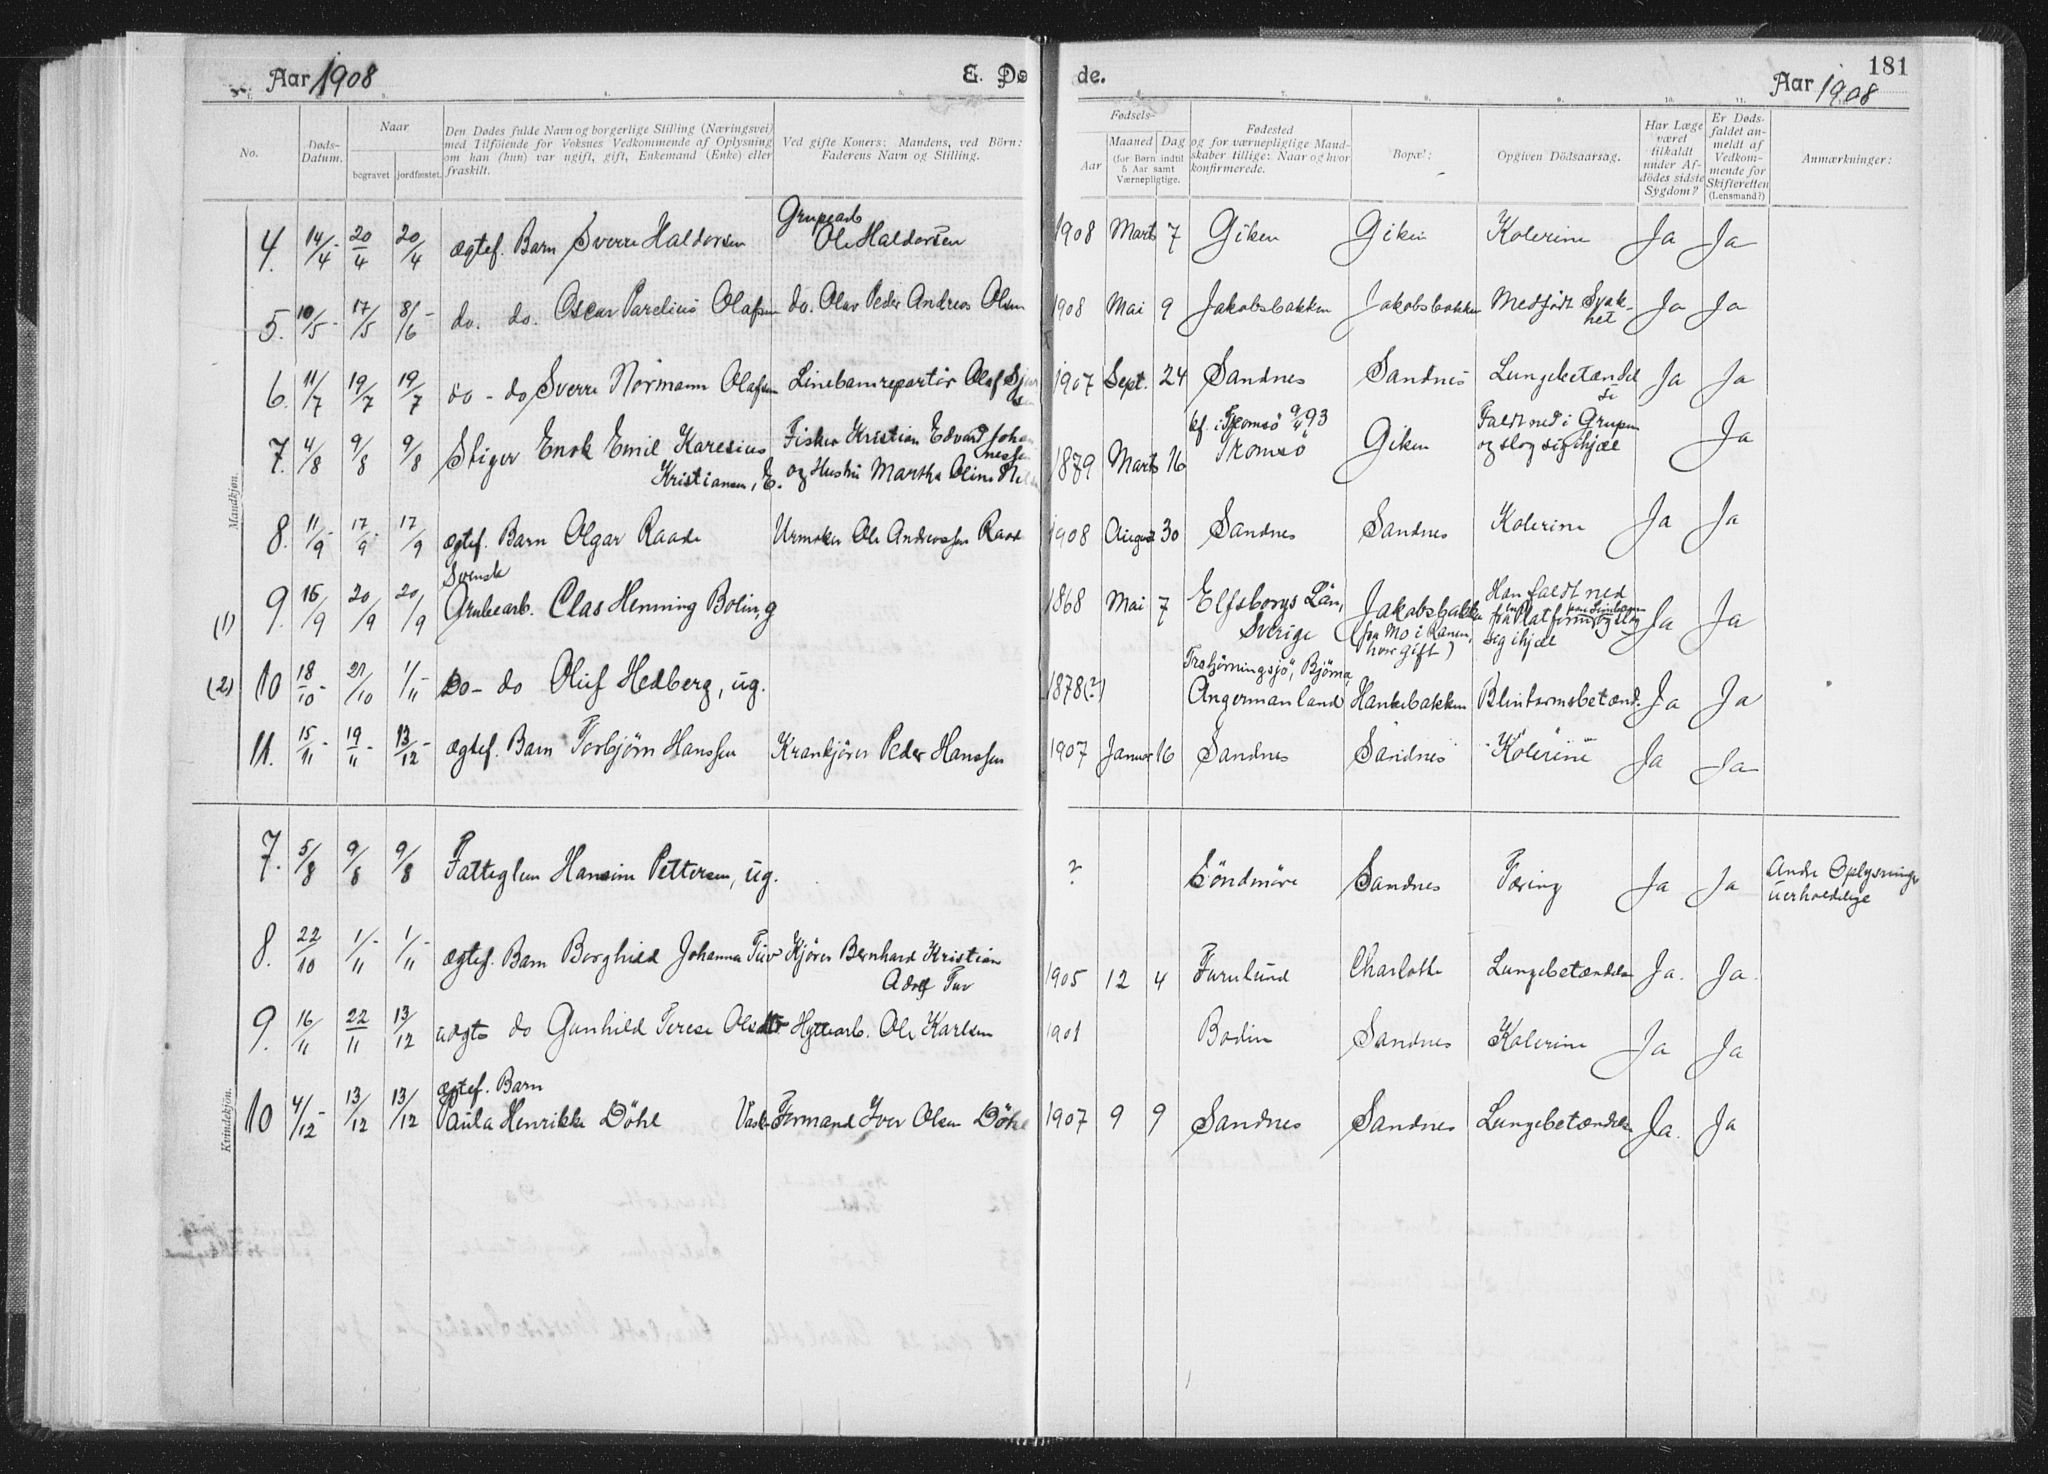 Aar 1908
E. Dø de.
Aar 1908
181
No.
Døds-Datum.
Naar
bogravet jordfæstet.
Den Dødes fulde Navn og borgerlige Stilling (Næringsvei) med Tilføiende for Voksnes Vedkommende af Oplysning om han (hun) var ugift, gift, Enkemand (Enke) eller fraskilt.
Ved gifte Koners: Mandens, ved Börn: Faderens Navn og Stilling.
Fødsels-
Aar
Maaned Dag
(for Børn indtil 5 Aar samt Værnepligtige.
Fødested og for værnepligtige Mandskaber tillige: Naar og hvor konfirmerede.
Bopæl:
Opgiven Dödsaarsag.
Har Læge været tilkaldt under Afdödes sidste Sygdom?
Er Dødsfaldet anmeldt af Vedkommende for Skifteretten (Lensmand?)
Anmærkninger:
Mandkjøn.
4. 14/4 20/4 20/4 ægtef. Barn Sverre Haldorsen Ole Haldorsen 1908 Marts 7 Giken Giken Kolerine Ja Ja
5. 10/5 17/5 8/6 do. do. Oscar Parelius Olafsen do. Olav Peder Andreas Olsen 1908 Mai 9 Jakobsbakken Jakobsbakken Medfødt Svakhet Ja Ja
6. 11/7 19/7 19/7 do - do Sverre Normann Olafsen Linebanreparatør Olaf 1907 Sept. 24 Sandnes Sandnes Lungebetændelse Ja Ja
7. 4/8 9/8 9/8 Stiger Enok Emil Karesius Kristiansen, E. Fisker Kristian Edvard Johannessen og Hustru Martha Oline 1879 Marts 16 kf. i Tromsø 9/4 93 Tromsö Giken Faldt ned i Grupen og slog sig ihjæl Ja
8. 11/9 17/9 17/9 ægtef. Barn Olgar Raade Urmaker Ole Andreassen Raade 1908 August 30 Sandnes Sandnes Kolerine Ja Ja
(1) 9. 16/9 20/9 20/9 Svensk Grubearb. Clas Henning Boling 1868 Mai 7 Elfsborgs Län, Sverige Jakobsbakken (fra Mo i Ranen, hvor gift) Han faldt ned fra Platform og slog sig ihjæl Ja Ja
(2) 10 18/10 21/10 1/11 Do - do Oluf Hedberg, ug. 1878(?) Björna, Angermanland Hankebakken Blintarmsbetænd. Ja Ja
11. 15/11 19/11 13/12 ægtef. Barn Torbjørn Hanssen Krankjörer Peder Hanssen 1907 Januar 16 Sandnes Sandnes Kolerine Ja Ja
Kvindekjön.
7. 5/8 9/8 9/8 Fattiglem Hansine Pettersen, ug. ? Söndmöre Sandnes Tæring Ja Ja Andre Oplysninger uerholdelige
8. 22/10 1/11 1/11 ægtef. Barn Borghild Johanna Tuv Kjörer Bernhard Kristian Adolf Tuv 1905 12 4 Furulund Charlotte Lungebetændelse Ja. Ja.
9. 16/11 22/11 13/12 uægte do Gunhild Terese Olsdtr Hyttearb. Ole Karlsen 1901 Bodin Sandnes Kolerine Ja Ja
10 4/12 13/12 13/12 ægtef. Barn Paula Henrikke Döhl Vask-Formand Iver Olsen Döhl 1907 9 9 Sandnes Sandnes Lungebetændelse Ja. Ja